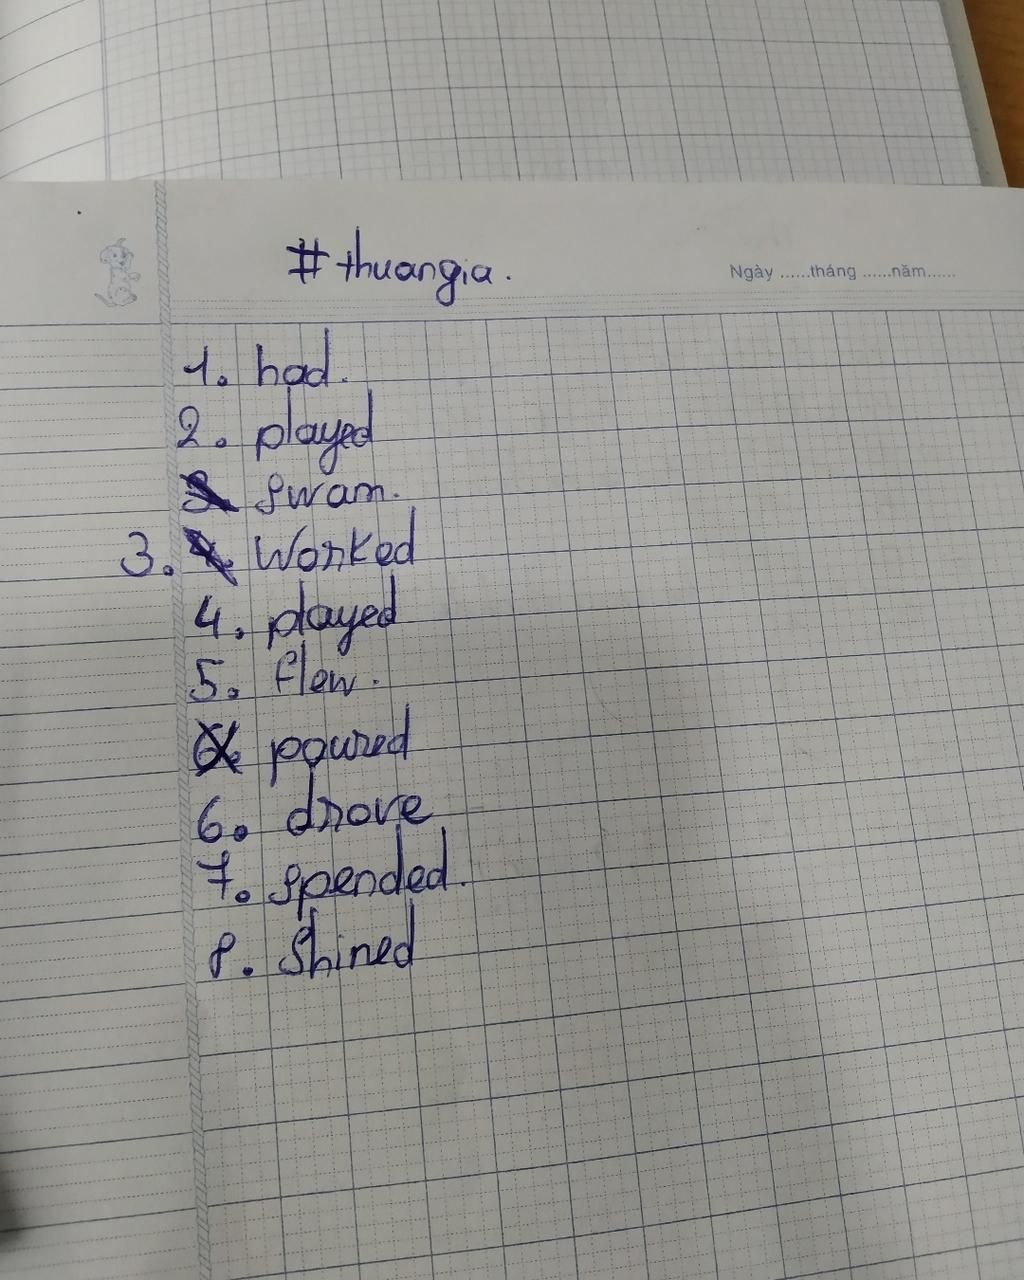 #thuangia.
Ngày ......tháng ......năm......
1. had.
2. played
swam.
3. Worked
4. played
5. flew.
poured
6. drove
7. spended.
8. Shined